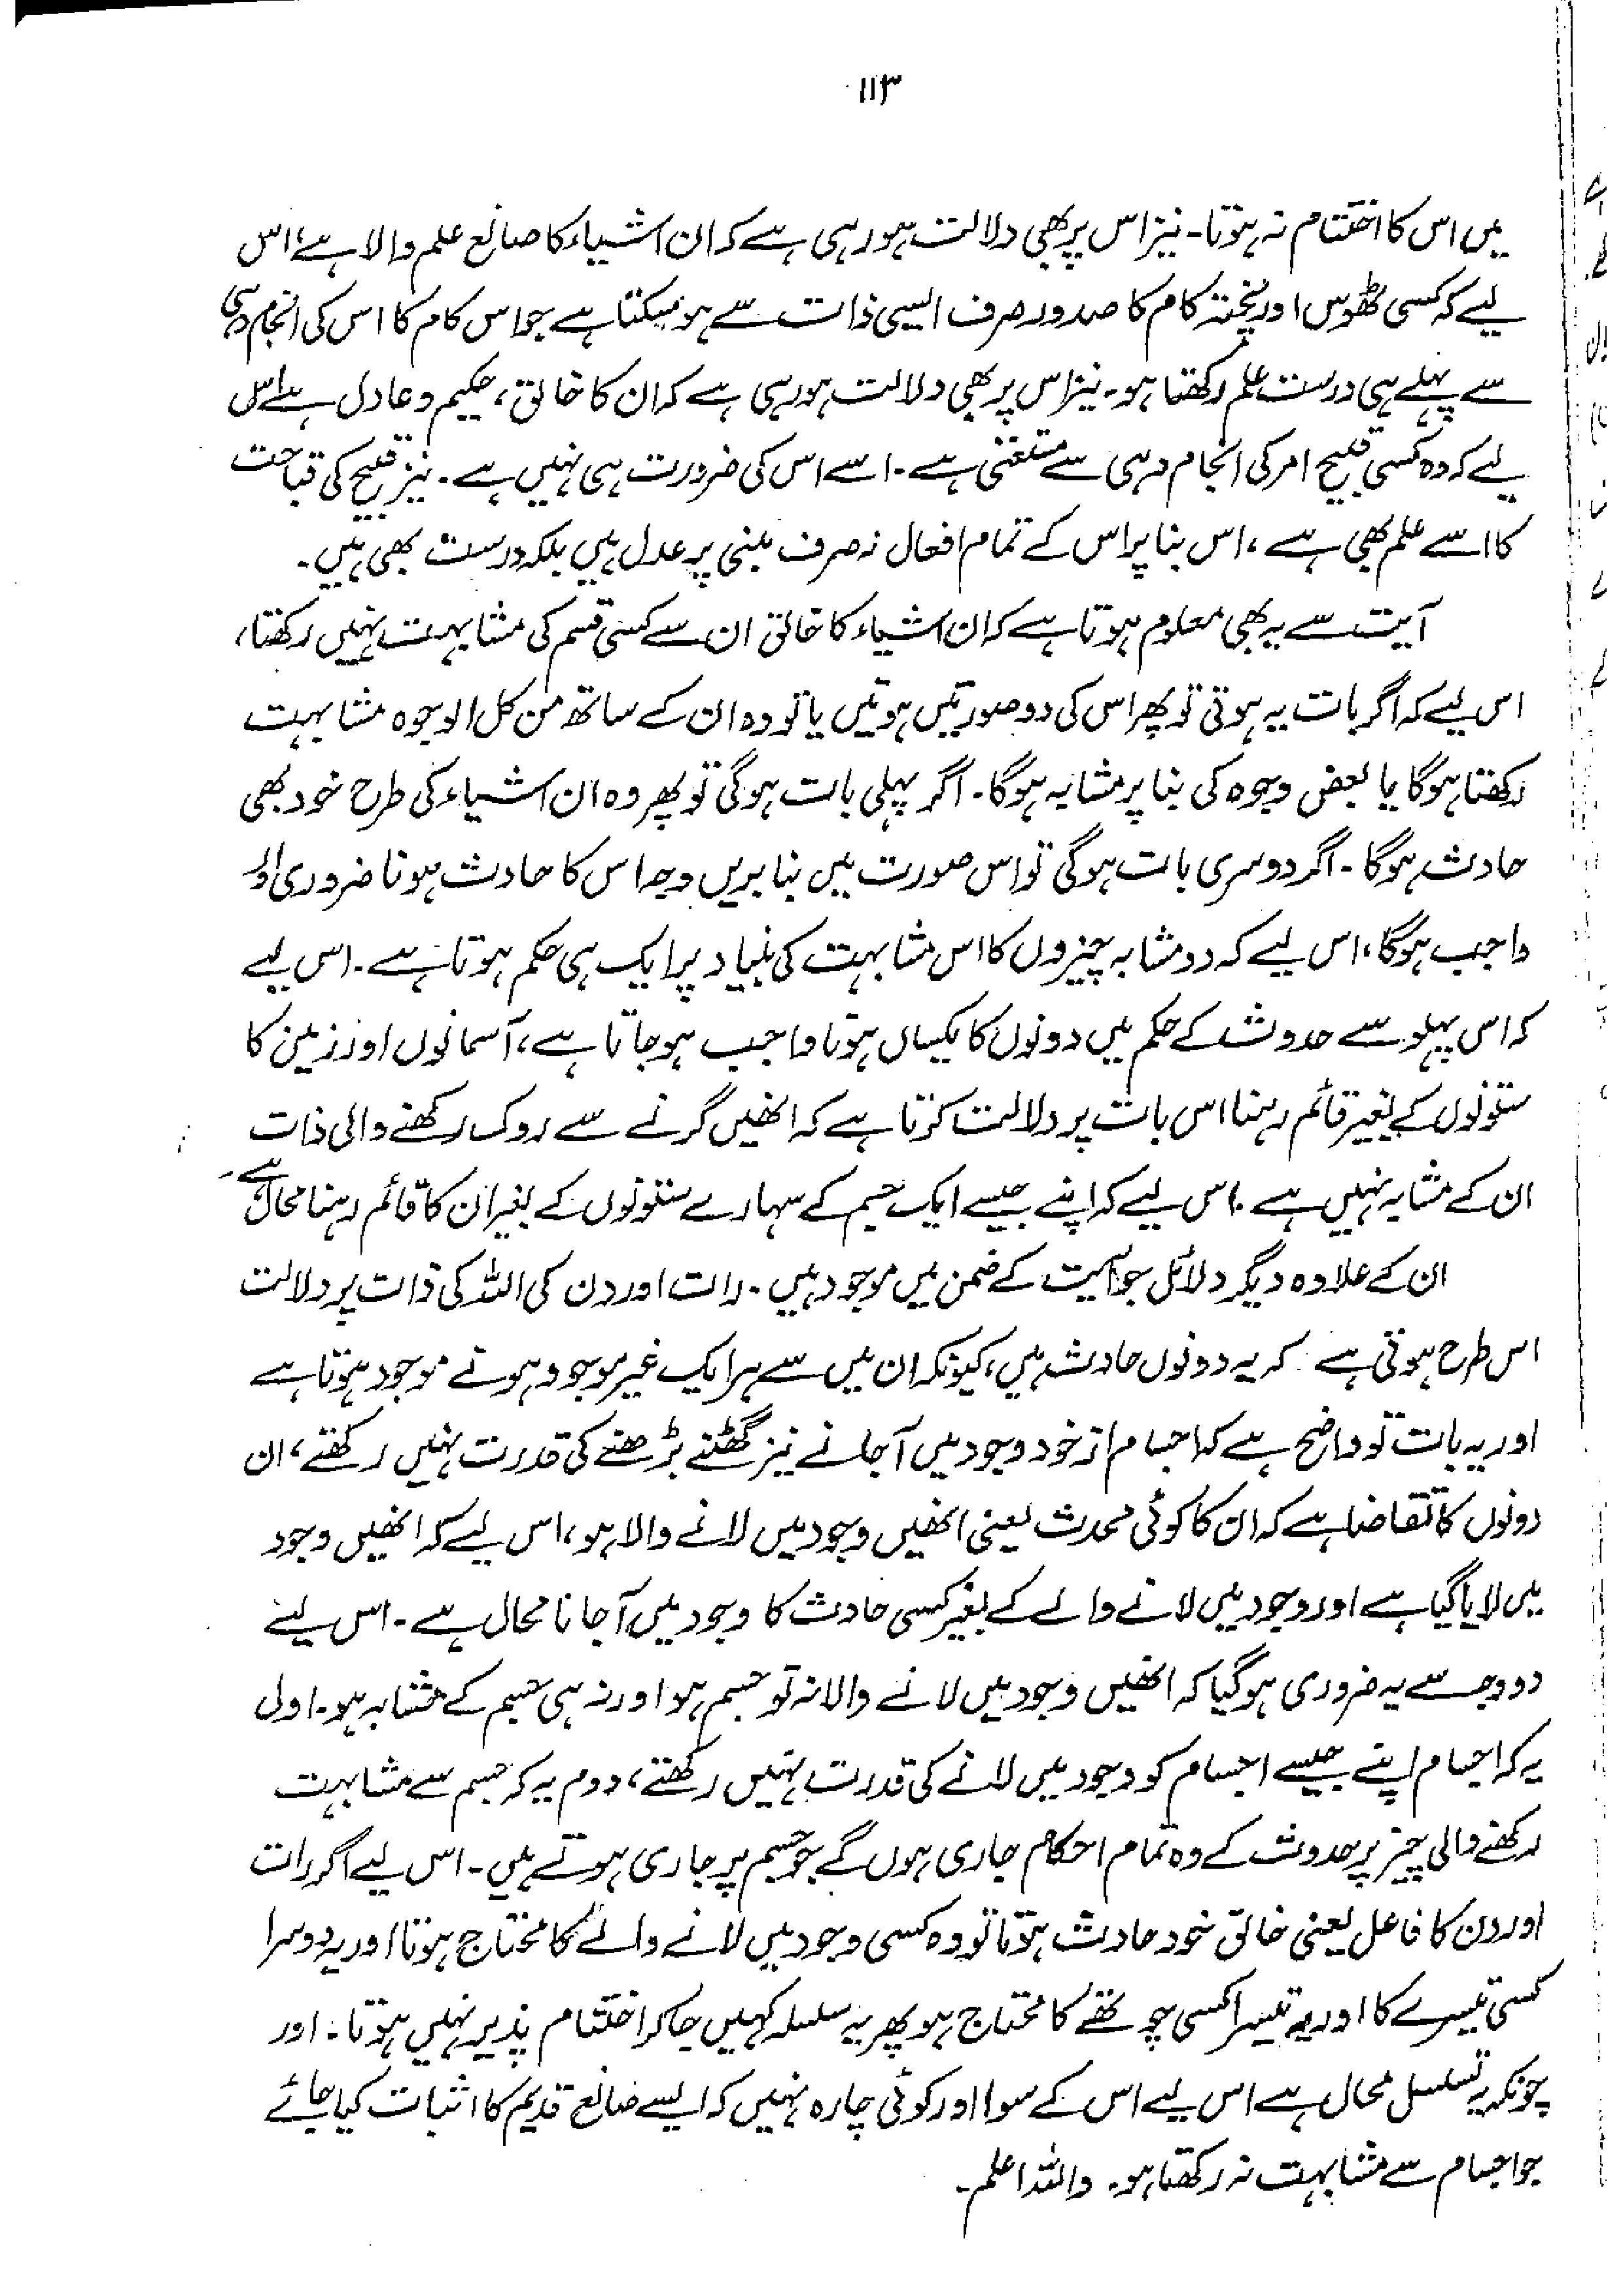 ۱۱۳
میں اس کا اختتام نہ ہوتا۔ نیز اس پر بھی دلالت ہو رہی ہے کہ ان اشیاء کا صانع علم والا ہے، اس
لیے کہ کسی ٹھوس اور پختہ کام کا صدور صرف ایسی ذات سے ہو سکتا ہے جو اس کام کا اس کی انجام دہی
سے پہلے ہی درست علم رکھتا ہو۔ نیز اس پر بھی دلالت ہو رہی ہے کہ ان کا خالق، حکیم و عادل ہے اس
لیے کہ وہ کسی قبیح امر کی انجام دہی سے مستغنی ہے۔ اسے اس کی ضرورت ہی نہیں ہے۔ نیز قبیح کی قباحت
کا اسے علم بھی ہے، اس بنا پر اس کے تمام افعال نہ صرف مبنی پر عدل ہیں بلکہ درست بھی ہیں۔
آیت سے یہ بھی معلوم ہوتا ہے کہ ان اشیاء کا خالق ان سے کسی قسم کی مشابہت نہیں رکھتا،
اس لیے کہ اگر بات یہ ہوتی تو پھر اس کی دو صورتیں ہوتیں یا تو وہ ان کے ساتھ من کل الوجوہ مشابہت
رکھتا ہوگا یا بعض وجوہ کی بنا پر مشابہ ہوگا۔ اگر پہلی بات ہوگی تو پھر وہ ان اشیاء کی طرح خود بھی
حادث ہوگا۔ اگر دوسری بات ہوگی تو اس صورت میں بنا بریں وجہ اس کا حادث ہونا ضروری اور
واجب ہوگا، اس لیے کہ دو مشابہ چیزوں کا اس مشابہت کی بنیاد پر ایک ہی حکم ہوتا ہے۔ اس لیے
کہ اس پہلو سے حدوث کے حکم میں دونوں کا یکساں ہونا واجب ہو جاتا ہے، آسمانوں اور زمین کا
ستونوں کے بغیر قائم رہنا اس بات پر دلالت کرتا ہے کہ انھیں گرنے سے روک رکھنے والی ذات
ان کے مشابہ نہیں ہے۔ اس لیے کہ اپنے جیسے ایک جسم کے سہارے ستونوں کے بغیر ان کا قائم رہنا محال ہے۔
ان کے علاوہ دیگر دلائل جو آیت کے ضمن میں موجود ہیں۔ رات اور دن کی اللہ کی ذات پر دلالت
اس طرح ہوتی ہے کہ یہ دونوں حادث ہیں، کیونکہ ان میں سے ہر ایک غیر موجود ہوتے موجود ہوتا ہے
اور یہ بات تو واضح ہے کہ اجسام از خود وجود میں آجانے نیز گھٹنے بڑھنے کی قدرت نہیں رکھتے، ان
دونوں کا تقاضا ہے کہ ان کا کوئی محدث یعنی انھیں وجود میں لانے والا ہو، اس لیے کہ انھیں وجود
میں لایا گیا ہے اور وجود میں لانے والے کے بغیر کسی حادث کا وجود میں آجانا محال ہے۔ اس لیے
دو وجہ سے یہ ضروری ہو گیا کہ انھیں وجود میں لانے والا نہ تو جسم ہو اور نہ ہی جسم کے مشابہ ہو۔ اول
یہ کہ اجسام اپنے جیسے اجسام کو وجود میں لانے کی قدرت نہیں رکھتے، دوم یہ کہ جسم سے مشابہت
رکھنے والی چیز پر حدوث کے وہ تمام احکام جاری ہوں گے جو جسم پر جاری ہوتے ہیں۔ اس لیے اگر رات
اور دن کا فاعل یعنی خالق خود حادث ہوتا تو وہ کسی وجود میں لانے والے کا محتاج ہوتا اور یہ دوسرا
کسی تیسرے کا اور یہ تیسرا کسی چوتھے کا محتاج ہو پھر یہ سلسلہ کہیں جا کر اختتام پذیر نہیں ہوتا۔ اور
چونکہ یہ تسلسل محال ہے اس لیے اس کے سوا اور کوئی چارہ نہیں کہ ایسے صانع قدیم کا اثبات کیا جائے
جو اجسام سے مشابہت نہ رکھتا ہو۔ واللہ اعلم۔